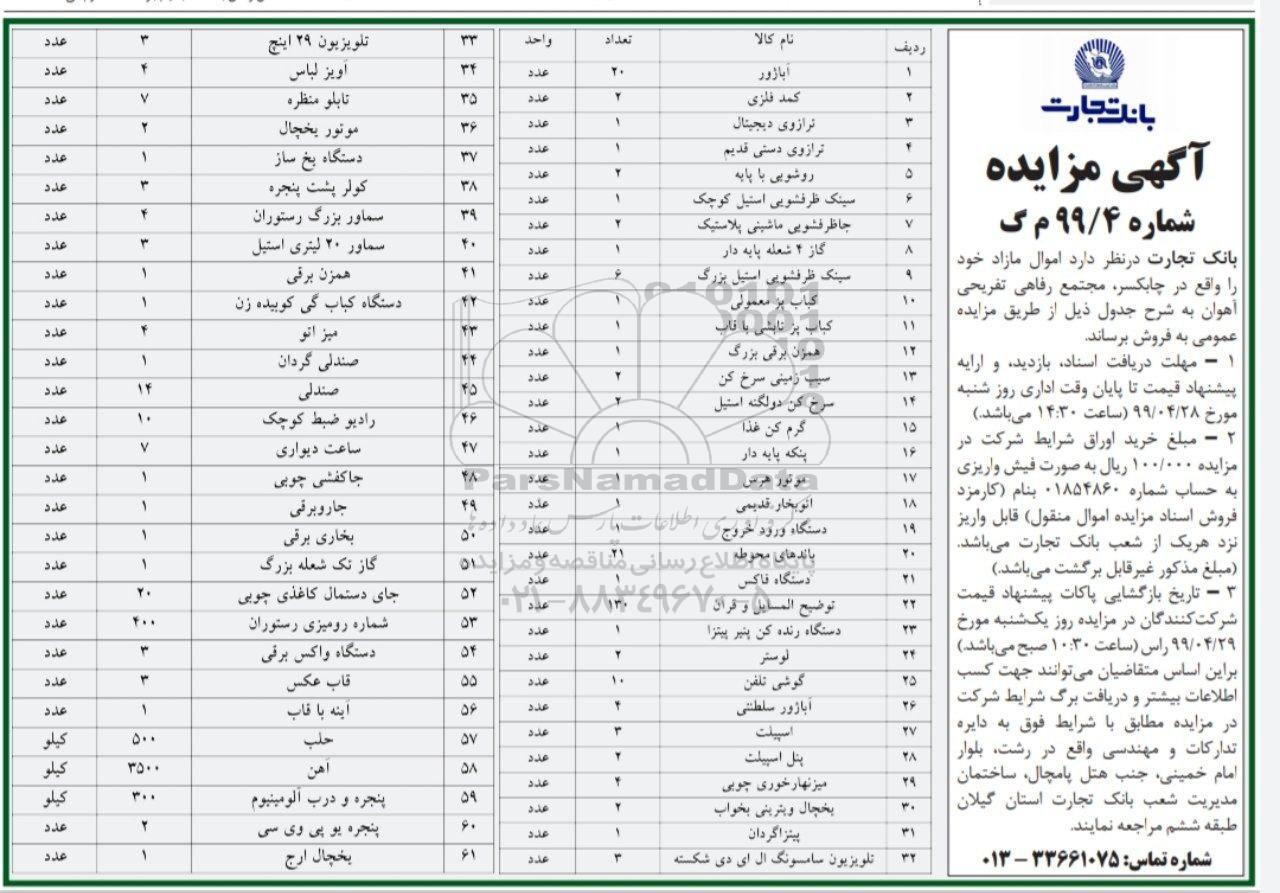 بانک تجارت
آگهی مزایده
شماره ۹۹/۴ م گ
بانک تجارت درنظر دارد اموال مازاد خود
را واقع در چابکسر، مجتمع رفاهی تفریحی
آهوان به شرح جدول ذیل از طریق مزایده
عمومی به فروش برساند.
۱ – مهلت دریافت اسناد، بازدید، و ارایه
پیشنهاد قیمت تا پایان وقت اداری روز شنبه
مورخ ۹۹/۰۴/۲۸ (ساعت ۱۴:۳۰ می‌باشد.)
۲ – مبلغ خرید اوراق شرایط شرکت در
مزایده ۱۰۰/۰۰۰ ریال به صورت فیش واریزی
به حساب شماره ۰۱۸۵۴۸۶۰ بنام (کارمزد
فروش اسناد مزایده اموال منقول) قابل واریز
نزد هریک از شعب بانک تجارت می‌باشد.
(مبلغ مذکور غیرقابل برگشت می‌باشد.)
۳ – تاریخ بازگشایی پاکات پیشنهاد قیمت
شرکت‌کنندگان در مزایده روز یک‌شنبه مورخ
۹۹/۰۴/۲۹ راس (ساعت ۱۰:۳۰ صبح می‌باشد.)
براین اساس متقاضیان می‌توانند جهت کسب
اطلاعات بیشتر و دریافت برگ شرایط شرکت
در مزایده مطابق با شرایط فوق به دایره
تدارکات و مهندسی واقع در رشت، بلوار
امام خمینی، جنب هتل پامچال، ساختمان
مدیریت شعب بانک تجارت استان گیلان
طبقه ششم مراجعه نمایند.
شماره تماس: ۳۳۶۶۱۰۷۵ – ۰۱۳
ردیف نام کالا تعداد واحد
۱ آباژور ۲۰ عدد
۲ کمد فلزی ۲ عدد
۳ ترازوی دیجیتال ۱ عدد
۴ ترازوی دستی قدیم ۱ عدد
۵ روشویی با پایه ۲ عدد
۶ سینک ظرفشویی استیل کوچک ۱ عدد
۷ جاظرفشویی ماشینی پلاستیک ۲ عدد
۸ گاز ۴ شعله پایه دار ۱ عدد
۹ سینک ظرفشویی استیل بزرگ ۶ عدد
۱۰ کباب پز معمولی ۱ عدد
۱۱ کباب پز تابشی با قاب ۱ عدد
۱۲ همزن برقی بزرگ ۱ عدد
۱۳ سیب زمینی سرخ کن ۲ عدد
۱۴ سرخ کن دولگنه استیل ۲ عدد
۱۵ گرم کن غذا ۱ عدد
۱۶ پنکه پایه دار ۱ عدد
۱۷ موتور هرس ۱ عدد
۱۸ اتوبخار قدیمی ۱ عدد
۱۹ دستگاه ورود خروج ۱ عدد
۲۰ باندهای محوطه ۲۱ عدد
۲۱ دستگاه فاکس ۱ عدد
۲۲ توضیح المسایل و قرآن ۱۳۰ عدد
۲۳ دستگاه رنده کن پنیر پیتزا ۱ عدد
۲۴ لوستر ۲ عدد
۲۵ گوشی تلفن ۱۰ عدد
۲۶ آباژور سلطنتی ۴ عدد
۲۷ اسپیلت ۳ عدد
۲۸ پنل اسپیلت ۲ عدد
۲۹ میزنهارخوری چوبی ۴ عدد
۳۰ یخچال ویترینی بخواب ۲ عدد
۳۱ پیتزاگردان ۱ عدد
۳۲ تلویزیون سامسونگ ال ای دی شکسته ۳ عدد
۳۳ تلویزیون ۲۹ اینچ ۳ عدد
۳۴ آویز لباس ۴ عدد
۳۵ تابلو منظره ۷ عدد
۳۶ موتور یخچال ۲ عدد
۳۷ دستگاه یخ ساز ۱ عدد
۳۸ کولر پشت پنجره ۳ عدد
۳۹ سماور بزرگ رستوران ۴ عدد
۴۰ سماور ۲۰ لیتری استیل ۳ عدد
۴۱ همزن برقی ۱ عدد
۴۲ دستگاه کباب گی کوبیده زن ۱ عدد
۴۳ میز اتو ۴ عدد
۴۴ صندلی گردان ۱ عدد
۴۵ صندلی ۱۴ عدد
۴۶ رادیو ضبط کوچک ۱۰ عدد
۴۷ ساعت دیواری ۷ عدد
۴۸ جاکفشی چوبی ۱ عدد
۴۹ جاروبرقی ۱ عدد
۵۰ بخاری برقی ۱ عدد
۵۱ گاز تک شعله بزرگ ۱ عدد
۵۲ جای دستمال کاغذی چوبی ۲۰ عدد
۵۳ شماره رومیزی رستوران ۴۰۰ عدد
۵۴ دستگاه واکس برقی ۳ عدد
۵۵ قاب عکس ۳ عدد
۵۶ آینه با قاب ۱ عدد
۵۷ حلب ۵۰۰ کیلو
۵۸ آهن ۳۵۰۰ کیلو
۵۹ پنجره و درب آلومینیوم ۳۰۰ کیلو
۶۰ پنجره یو پی وی سی ۲ عدد
۶۱ یخچال ارج ۱ عدد
ParsNamadData
پایگاه اطلاع رسانی مناقصه و مزایده
۰۲۱-۸۸۳۴۹۶۷۰-۵